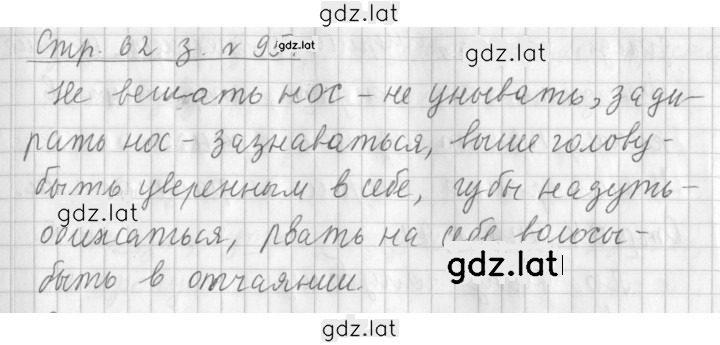 gdz.lat
Стр. 62 з. № 95.
gdz.lat
Не вешать нос – не унывать, зади-
рать нос – зазнаваться, выше голову –
быть уверенным в себе, губы надуть –
gdz.lat
обижаться, рвать на себе волосы –
gdz.lat
быть в отчаянии.
gdz.lat